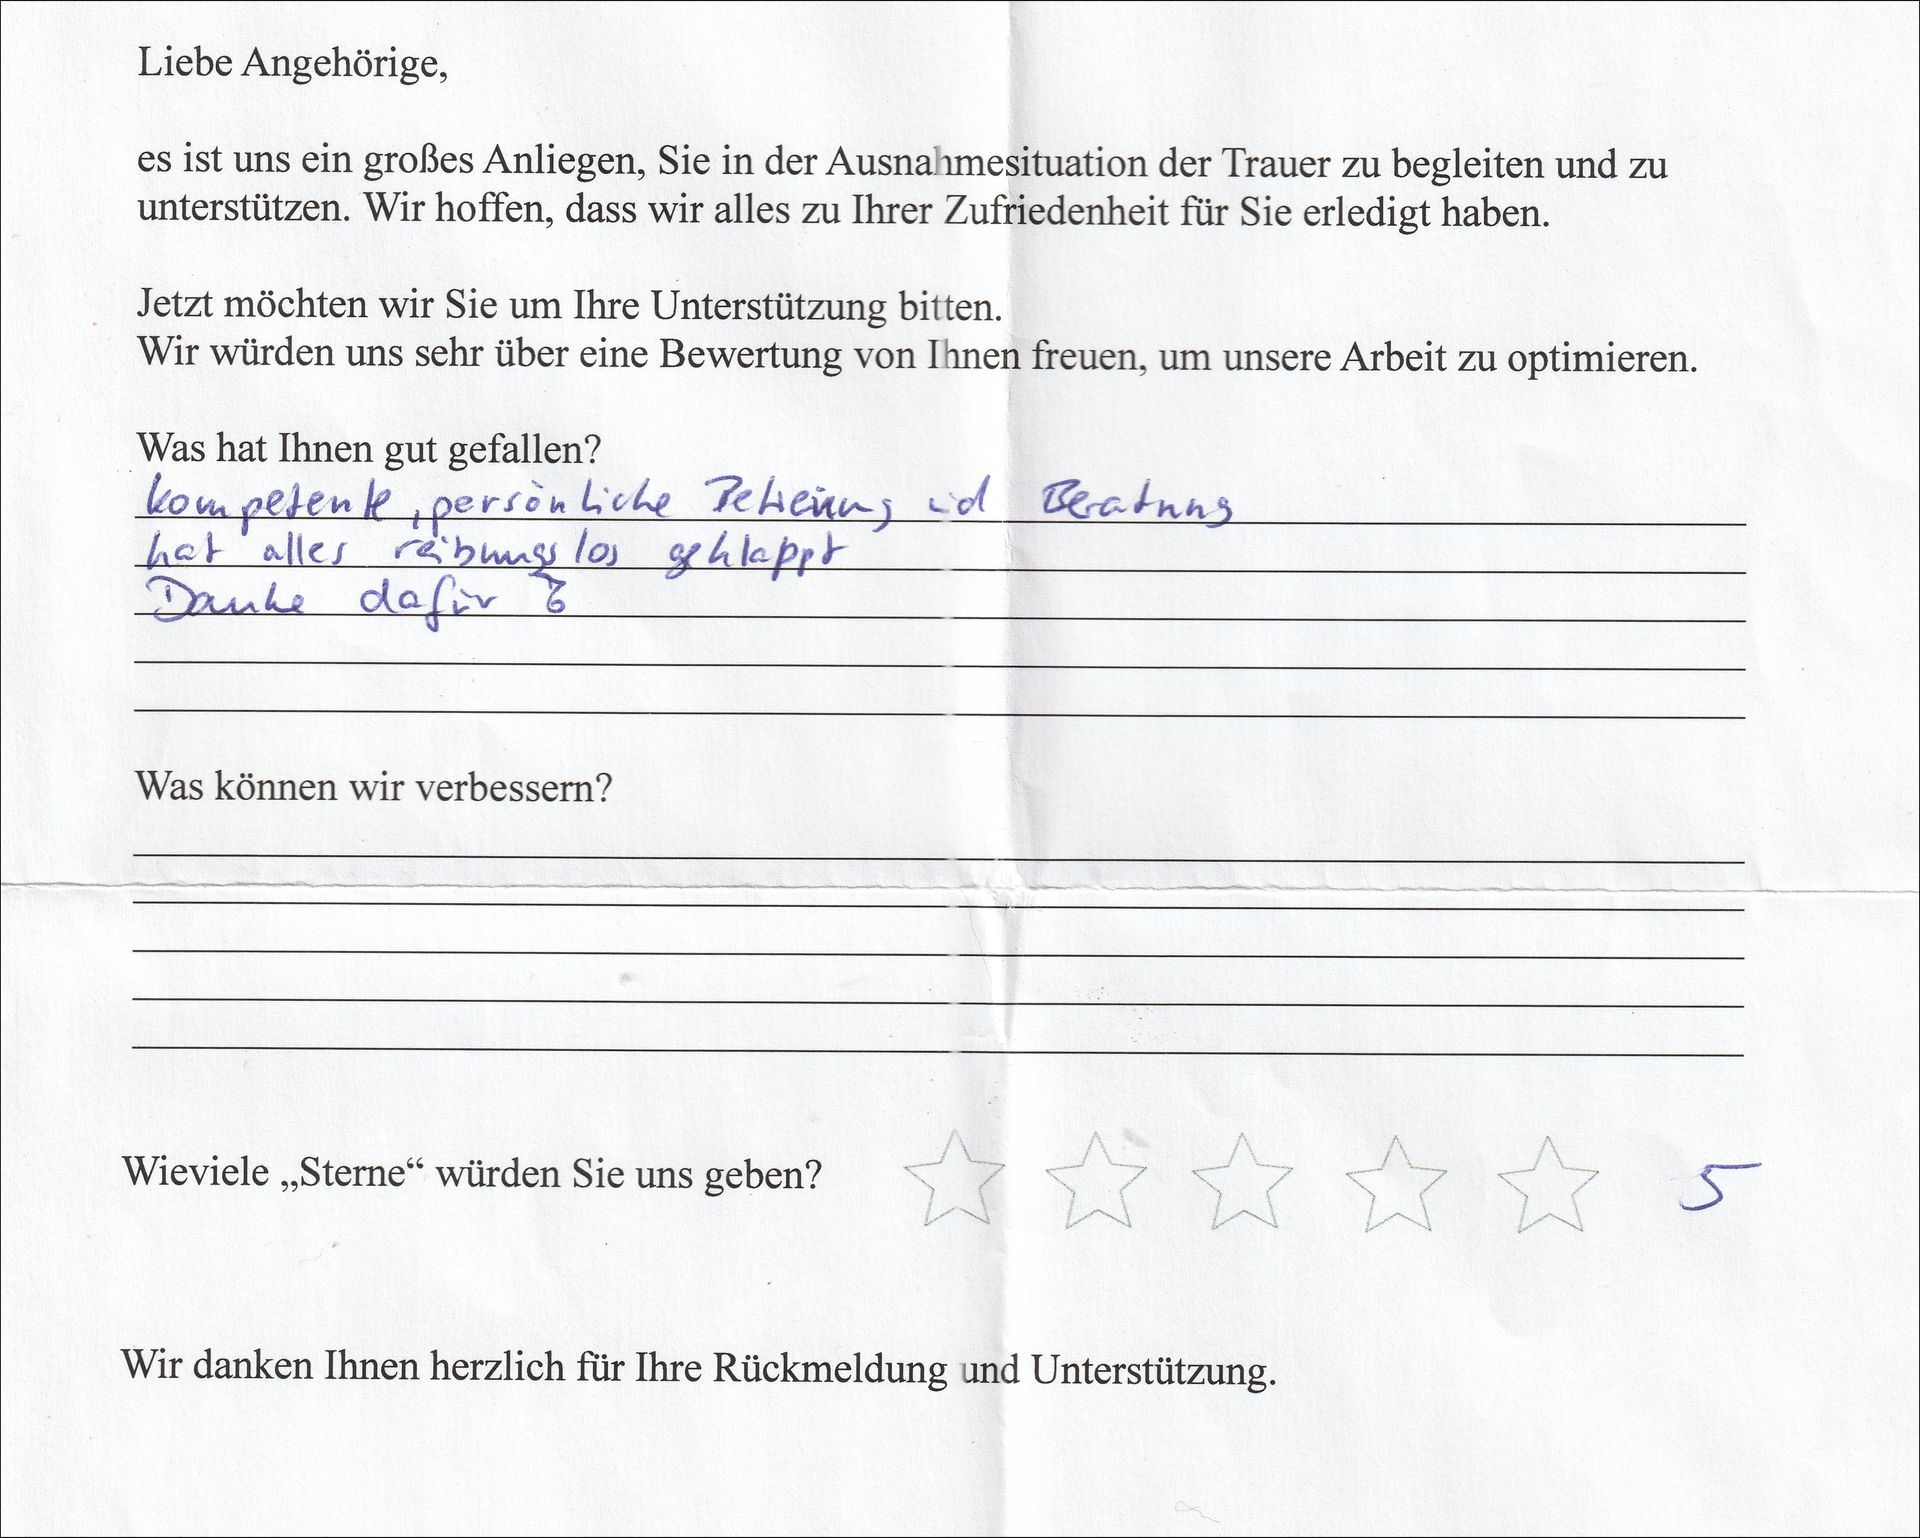 Liebe Angehörige,
es ist uns ein großes Anliegen, Sie in der Ausnahmesituation der Trauer zu begleiten und zu
unterstützen. Wir hoffen, dass wir alles zu Ihrer Zufriedenheit für Sie erledigt haben.
Jetzt möchten wir Sie um Ihre Unterstützung bitten.
Wir würden uns sehr über eine Bewertung von Ihnen freuen, um unsere Arbeit zu optimieren.
Was hat Ihnen gut gefallen?
kompetente, persönliche Betreuung und Beratung
hat alles reibungslos geklappt
Danke dafür !
Was können wir verbessern?
Wieviele „Sterne“ würden Sie uns geben? 5
Wir danken Ihnen herzlich für Ihre Rückmeldung und Unterstützung.